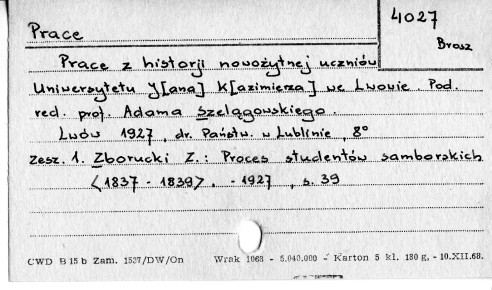 4027
Brosz
Prace
Prace z historji nowożytnej uczniów
Uniwersytetu J[ana] K[azimierza] we Lwowie. Pod.
red. prof. Adama Szelągowskiego.
Lwów 1927, dr. Państw. w Lublinie, 8°
zesz. 1. Zborucki Z.: Proces studentów samborskich
<1837 - 1839>. - 1927, s. 39
CWD B 15 b Zam. 1527/DW/On Wrak 1068 - 5.040.000 - Karton 5 kl. 180 g. - 10.XII.68.